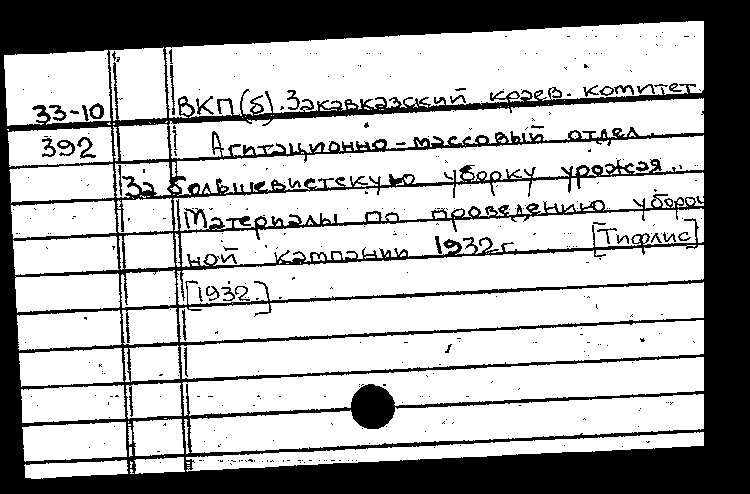 33-10 ВКП(б). Закавказский краев. комитет.
392 Агитационно-массовый отдел.
За большевистскую уборку урожая..
Материалы по проведению убороч
ной кампании 1932 г. [Тифлис]
[1932.]